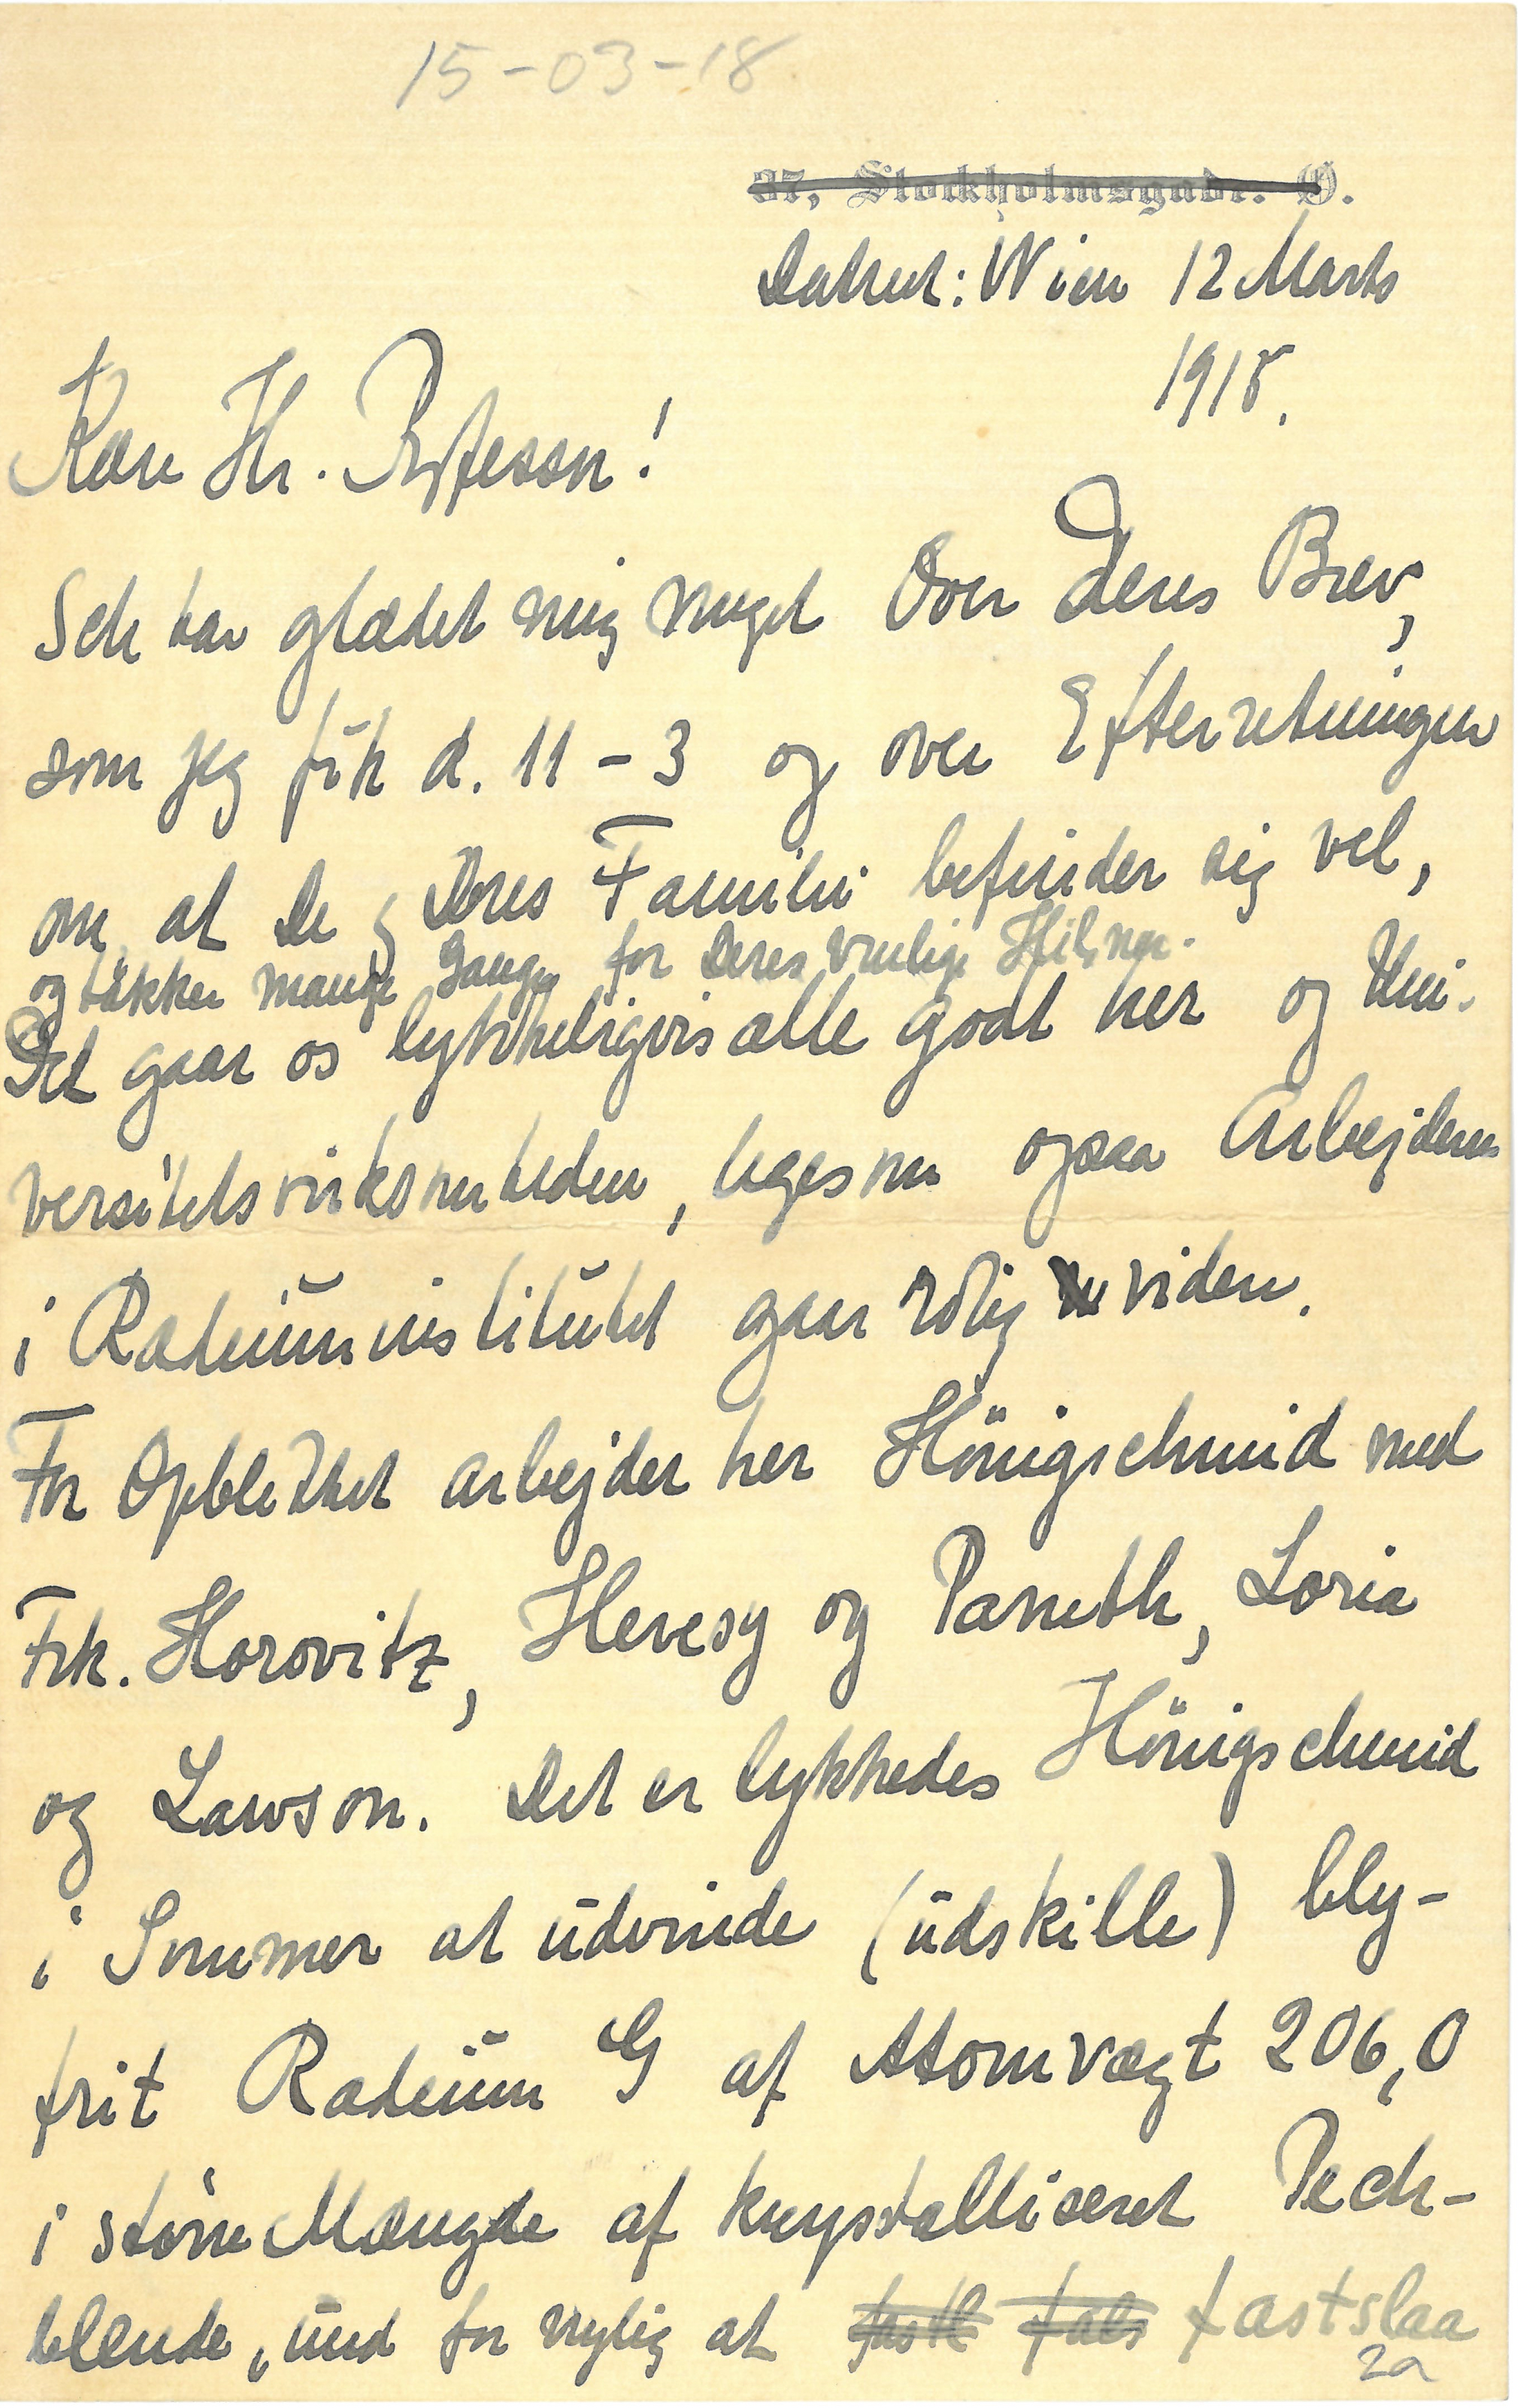 15-03-18
37, Stockholmsgade. Ø.
Datret: Wien 12 Marts
1915.
Kære Hr. Professor!
Ich har glædet mig meget Over Deres Brev,
som jeg fik d. 11 - 3 og over Efterretningen
om, at De og Deres Familie befinder sig vel,
og takker mange Gange for Deres venlige Hilsner.
Det gaar os lykkeligvis alle godt her og Uni-
versitetsvirksomheden, ligesom ogsaa Arbejderne
i Radiuminstitutet gaar rolig videre.
For Øjeblikket arbejder her Hönigschmid med
Frk. Horovitz, Hevesy og Paneth, Loria
og Lawson. Det er lykkedes Hönigschmid
i Sommer at udvinde (udskille) bly-
frit Radium G af Atomvægt 206,0
i større Mængde af krystalliseret Pech-
blende, und for nylig at fastslaa
2a